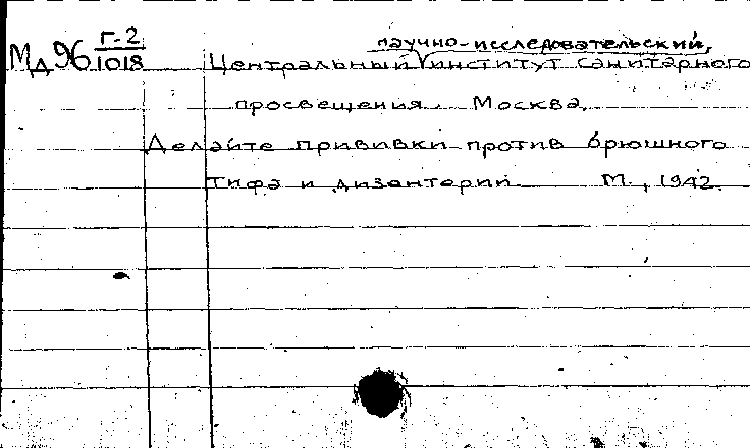 Мд 96 Г-2/1018
научно-исследовательский,
Центральный институт санитарного
просвещения. Москва.
Делайте прививки против брюшного
тифа и дизентерии. М., 1942.